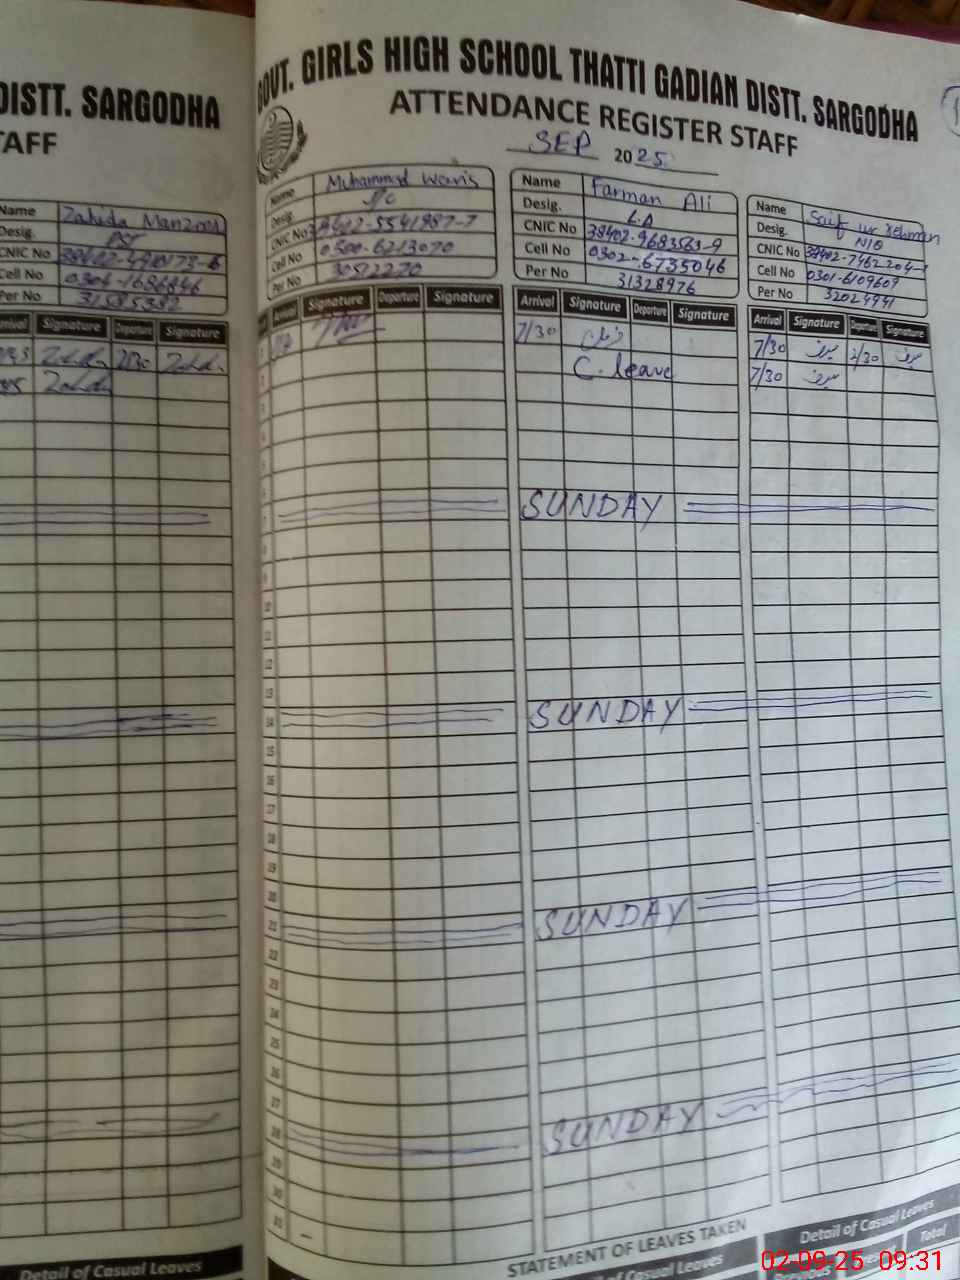 DISTT. SARGODHA
TAFF
Name Zahida Manzoor
Desig.
CNIC No
Cell No 0304-1686846
Per No 31585382
Arrival Signature Departure Signature
GOVT. GIRLS HIGH SCHOOL THATTI GADIAN DISTT. SARGODHA
ATTENDANCE REGISTER STAFF
SEP 2025
Name Muhammad Waris
Desig. J/C
CNIC No 38402-5541987-7
Cell No 0300-6213070
Per No 30512270
Name Farman Ali
Desig. L.A
CNIC No 38402-9683563-9
Cell No 0302-6735046
Per No 31328976
Name Saif ur Rehman
Desig. N/Q
CNIC No 38402-7462204-
Cell No 0301-6109609
Per No 32024941
Arrival Signature Departure Signature Arrival Signature Departure Signature Arrival Signature Departure Signature
1 7/30 7/30 2/30
2 C. leave 7/30
3
4
5
6
7 SUNDAY
8
9
10
11
12
13
14 SUNDAY
15
16
17
18
19
20
21 SUNDAY
22
23
24
25
26
27
28 SUNDAY
29
30
31
STATEMENT OF LEAVES TAKEN
Detail of Casual Leaves
Detail of Casual Leaves
Total
02-09-25 09:31